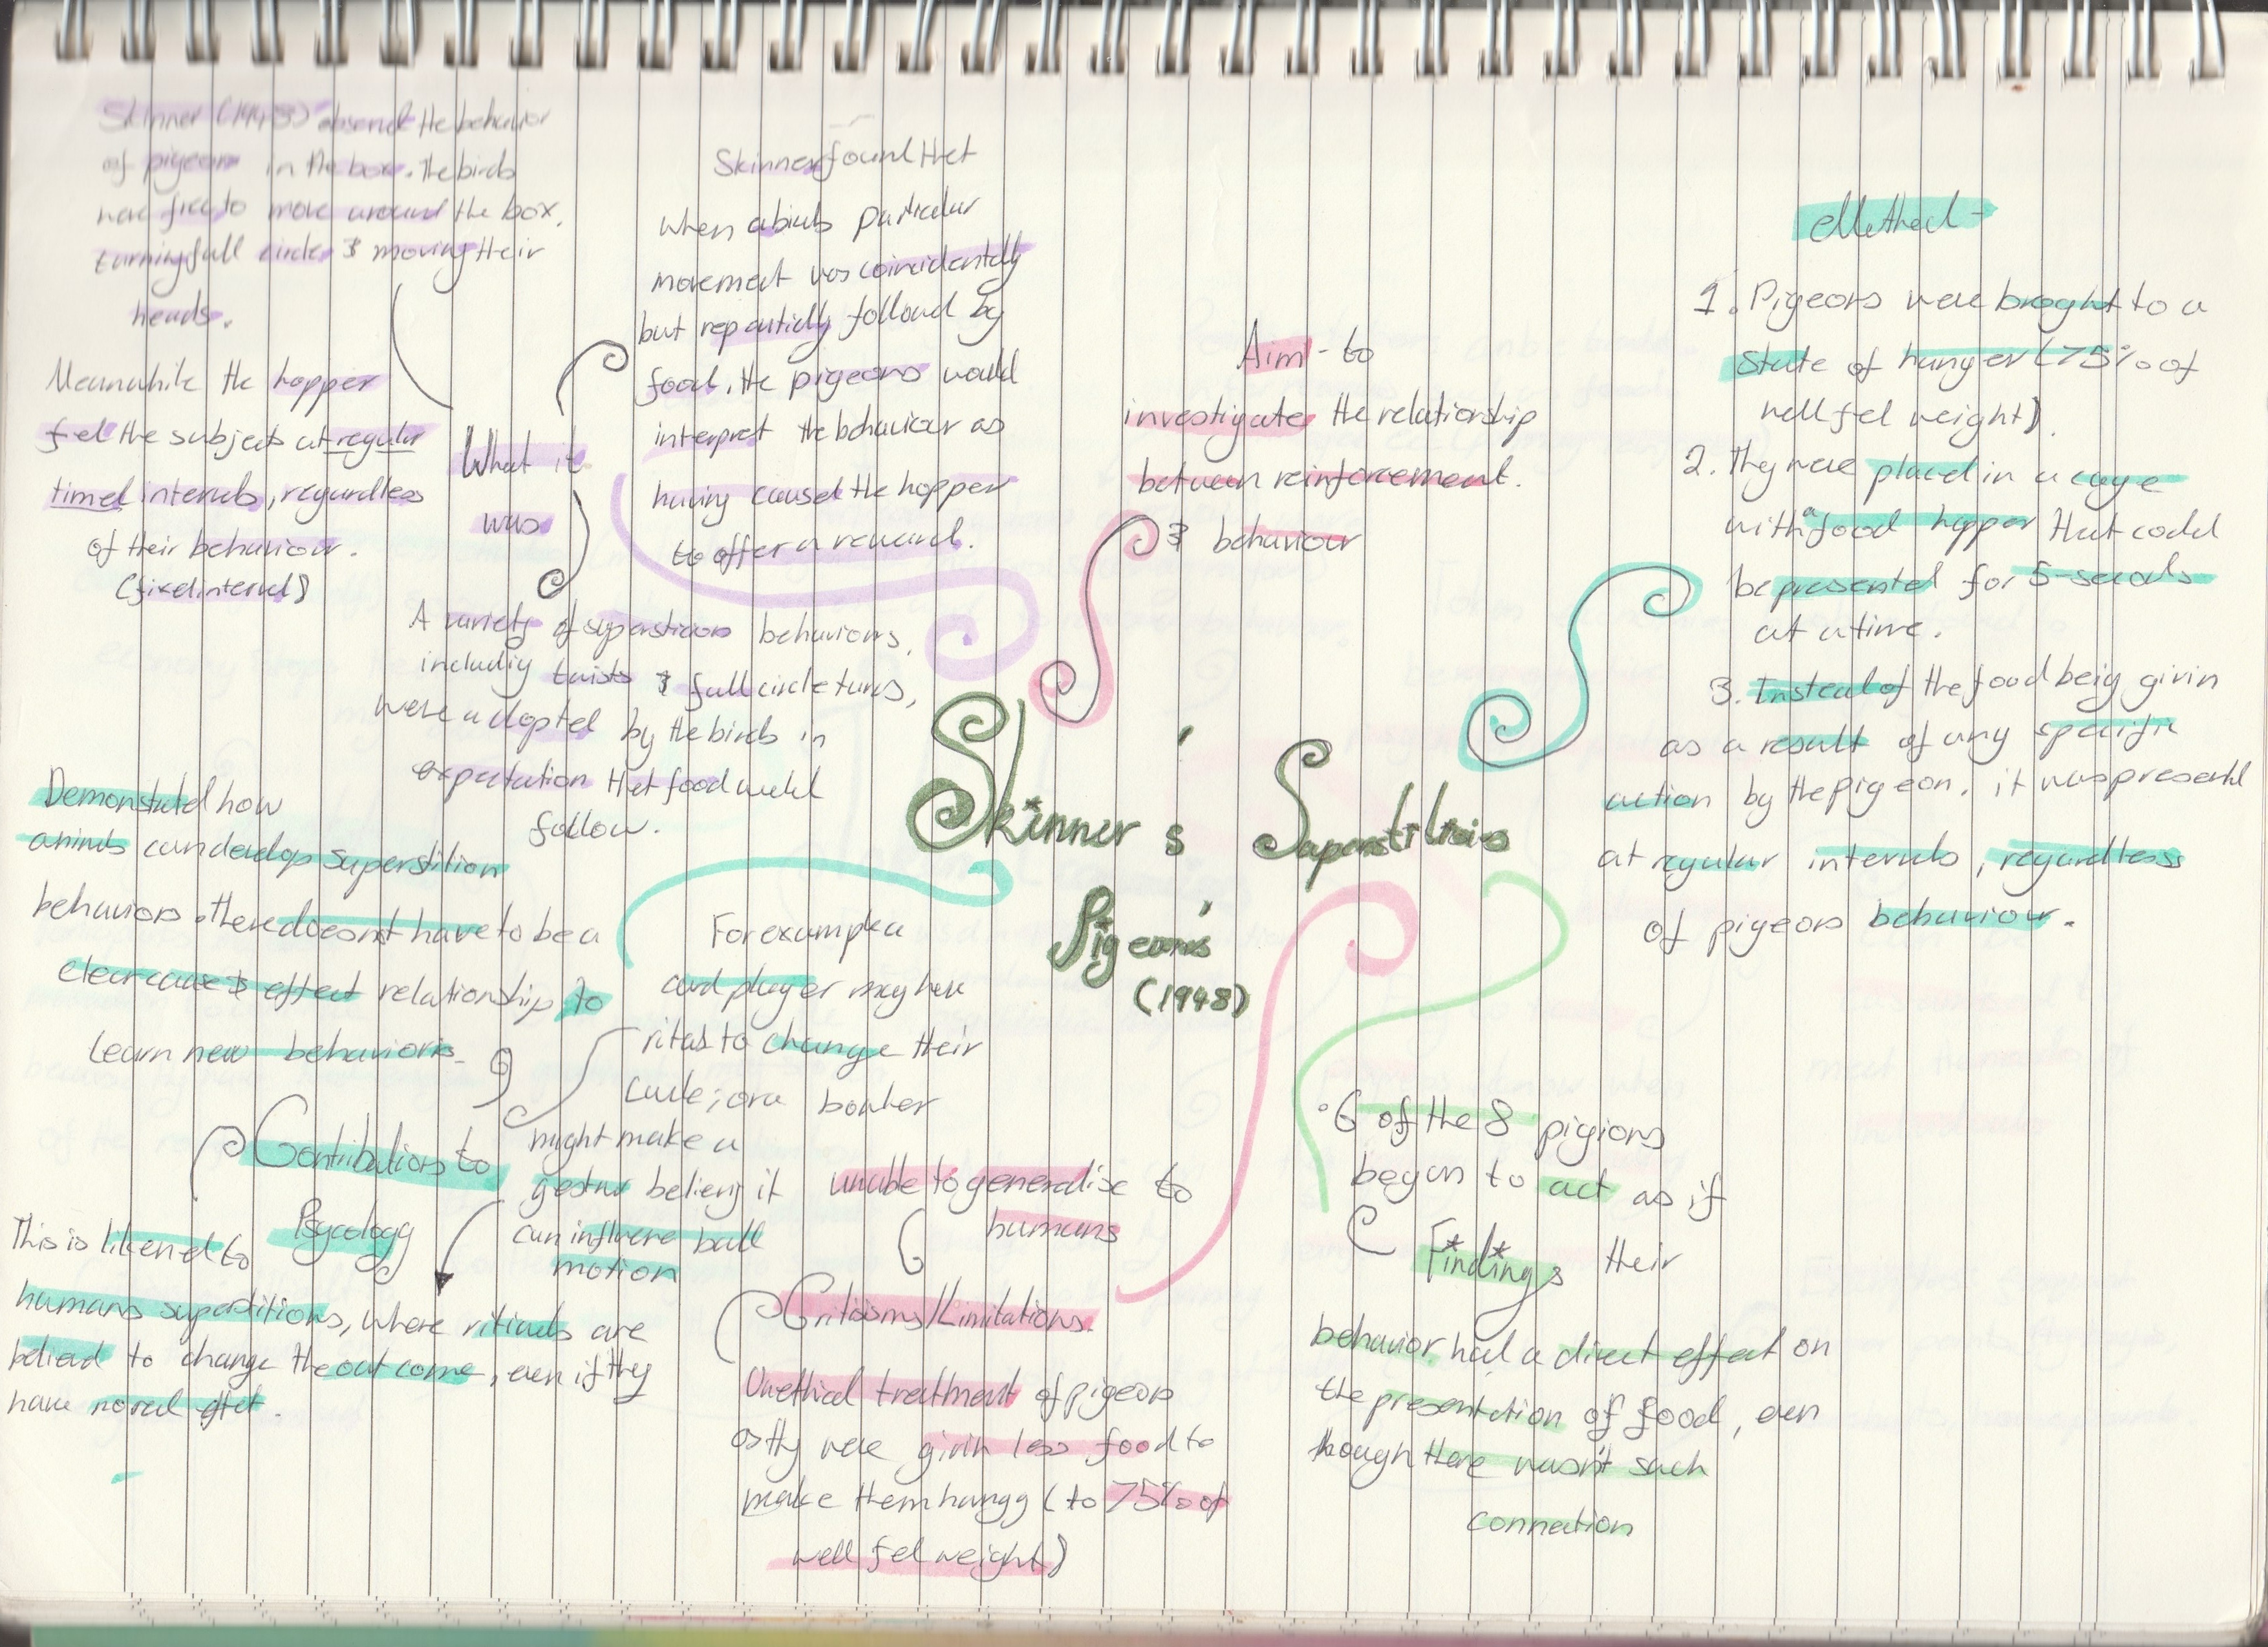 Skinner's 'Superstitios
Pigeons'
(1948)
Skinner (1948) observed the behavior
of pigeons in the box. The birds
were free to move around the box,
turning full circles & moving their
heads.
Meanwhile the hopper
fed the subjects at regular
timed intervals, regardless
of their behaviour.
(fixed interval)
What it
was
Skinner found that
when a birds particular
movement was coincidentally
but repeatidly followed by
food, the pigeons would
interpret the behaviour as
having caused the hopper
to offer a reward.
A variety of superstitions behaviors,
including twists & full circle turns,
were adopted by the birds in
expectation that food would
follow.
Aim - to
investigate the relationship
between reinforcement.
& behaviour
Method -
1. Pigeons were broght to a
state of hunger (75% of
well fed weight).
2. They were placed in a cage
with a food hopper that could
be presented for 5-seconds
at a time.
3. Instead of the food being givin
as a result of any specific
action by the pigeon, it was presented
at regular intervals, regardless
of pigeons behaviour.
Demonstated how
animals can develop superstition
behaviors. there doeosnt have to be a
clear cause & effect relationship, to
learn new behaviors.
Contributions to
Psycology
For example a
card player may have
ritas to change their
cards; or a bowler
might make a
gestur believing it
can influence ball
motion
This is likened to
humans superstitions, where rituals are
believed to change the out come, even if they
have no real effect.
unable to generalise to
humans
Critisisms/Limitations.
Unethical treatment of pigeons
as they were givin less food to
make them hungy (to 75% of
well fed weight)
• 6 of the 8 pigions
began to act as if
Findings their
behavior had a direct effect on
the presentation of food, even
though there wasn't such
connection